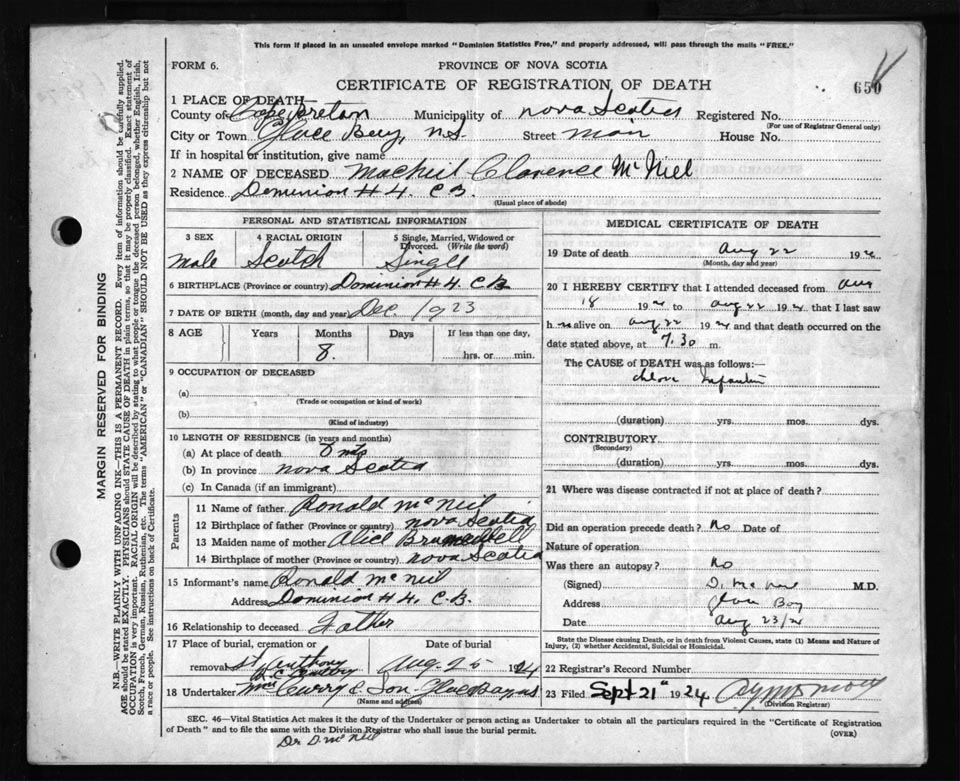 This form if placed in an unsealed envelope marked "Dominion Statistics Free," and properly addressed, will pass through the mails "FREE."
FORM 6.
PROVINCE OF NOVA SCOTIA
CERTIFICATE OF REGISTRATION OF DEATH
650
1 PLACE OF DEATH
County of Cape Breton Municipality of Nova Scotia Registered No.
(For use of Registrar General only)
City or Town Glace Bay, N.S. Street Main House No.
If in hospital or institution, give name
2 NAME OF DECEASED MacNeil Clarence McNiel
Residence Dominion #4. C.B.
(Usual place of abode)
PERSONAL AND STATISTICAL INFORMATION
3 SEX 4 RACIAL ORIGIN 5 Single, Married, Widowed or Divorced. (Write the word)
Male Scotch Single
6 BIRTHPLACE (Province or country) Dominion #4. C.B.
7 DATE OF BIRTH (month, day and year) Dec. 1923
8 AGE Years Months Days If less than one day,
8. hrs. or min.
9 OCCUPATION OF DECEASED
(a)
(Trade or occupation or kind of work)
(b)
(Kind of industry)
10 LENGTH OF RESIDENCE (in years and months)
(a) At place of death 8 mts
(b) In province Nova Scotia
(c) In Canada (if an immigrant)
Parents
11 Name of father Ronald McNeil
12 Birthplace of father (Province or country) Nova Scotia
13 Maiden name of mother Alice
14 Birthplace of mother (Province or country) Nova Scotia
15 Informant's name Ronald McNeil
Address Dominion #4, C.B.
16 Relationship to deceased Father
17 Place of burial, cremation or removal St. Anthony Date of burial Aug. 25 1924
18 Undertaker Curry & Son Glace Bay NS
(Name and address)
MEDICAL CERTIFICATE OF DEATH
19 Date of death Aug 22 192
(Month, day and year)
20 I HEREBY CERTIFY that I attended deceased from Aug
18 192 to Aug 22 192 that I last saw
h m alive on Aug 22 192 and that death occurred on
date stated above, at 7.30 m.
The CAUSE OF DEATH was as follows:—
(duration) yrs. mos. dys.
CONTRIBUTORY
(Secondary)
(duration) yrs. mos. dys.
21 Where was disease contracted if not at place of death?
Did an operation precede death? No Date of
Nature of operation
Was there an autopsy? No
(Signed) M.D.
Address Glace Bay
Date Aug 23/24
State the Disease causing Death, or in death from Violent Causes, state (1) Means and Nature of Injury, (2) whether Accidental, Suicidal or Homicidal.
22 Registrar's Record Number
23 Filed Sept 21 1924
(Division Registrar)
SEC. 46—Vital Statistics Act makes it the duty of the Undertaker or person acting as Undertaker to obtain all the particulars required in the "Certificate of Registration
of Death" and to file the same with the Division Registrar who shall issue the burial permit.
(OVER)
Dr. D. McNeil
MARGIN RESERVED FOR BINDING
N.B.—WRITE PLAINLY WITH UNFADING INK—THIS IS A PERMANENT RECORD. Every item of information should be carefully supplied.
AGE should be stated EXACTLY. PHYSICIANS should STATE CAUSE OF DEATH in plain terms, so that it may be properly classified. Exact statement of
OCCUPATION is very important. RACIAL ORIGIN will be described by stating to what people or tongue the deceased person belonged, whether English, Irish,
Scotch, French, German, Russian, Ruthenian, etc. The terms "AMERICAN" or "CANADIAN" SHOULD NOT BE USED as they express citizenship but not
a race or people. See instructions on back of Certificate.